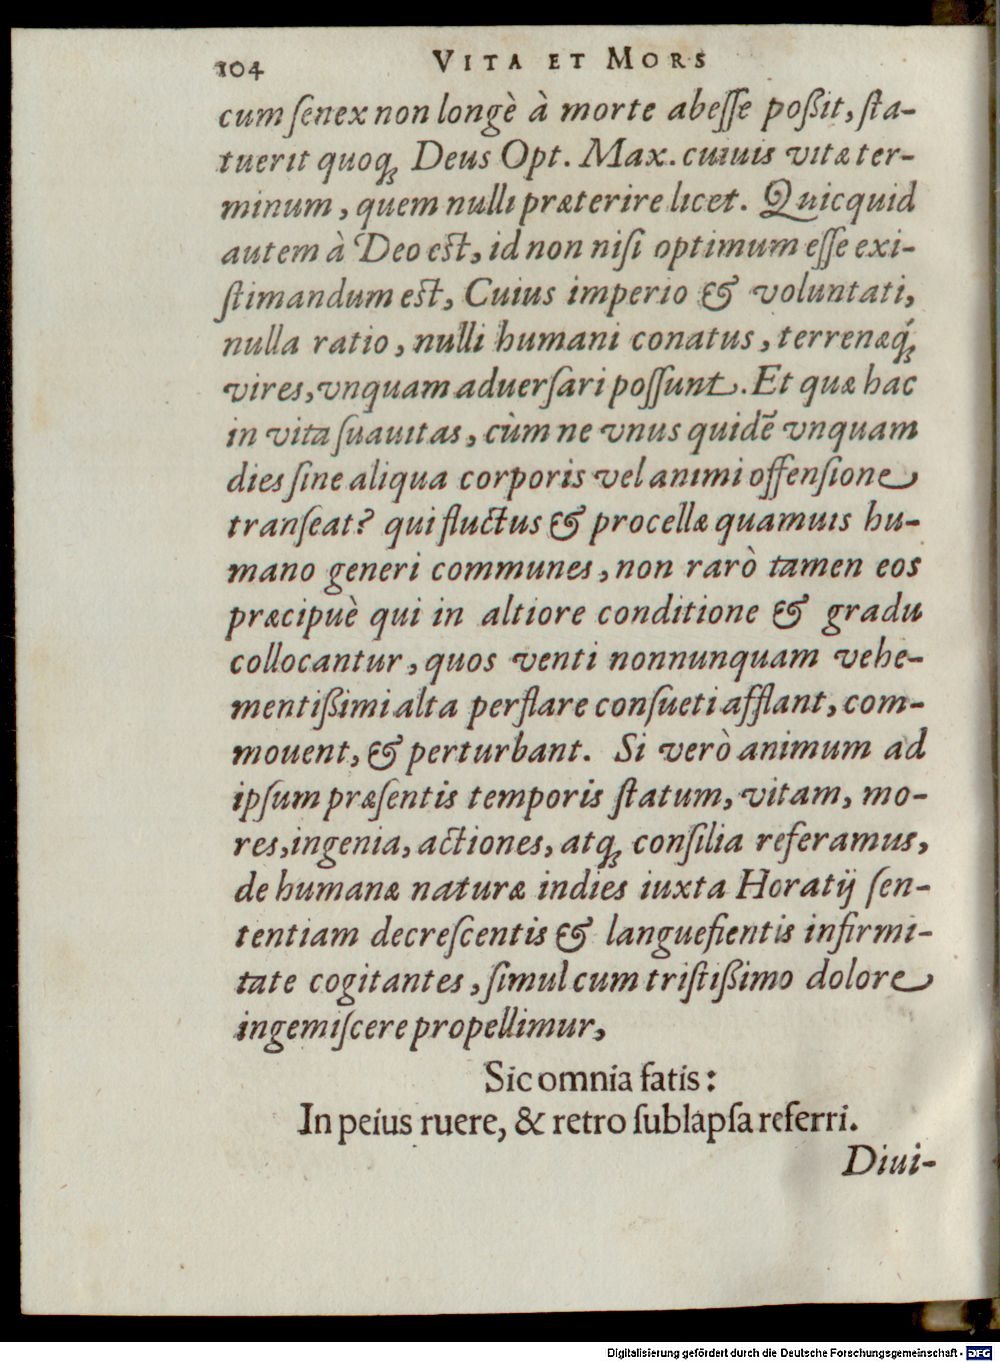 104 VITA ET MORS
cum ſenex non longè à morte abeſſe poßit, ſta-
tuerit quoq́; Deus Opt. Max. cuiuis vitæ ter-
minum, quem nulli præterire licet. Quicquid
autem à Deo est, id non niſi optimum eſſe exi-
ſtimandum est, Cuius imperio & voluntati,
nulla ratio, nulli humani conatus, terrenæq́;
vires, vnquam aduerſari poſſunt. Et quæ hac
in vita ſuauitas, cùm ne vnus quidē vnquam
dies ſine aliqua corporis vel animi offenſione
tranſeat? qui fluctus & procellæ quamuis hu-
mano generi communes, non rarò tamen eos
præcipuè qui in altiore conditione & gradu
collocantur, quos venti nonnunquam vehe-
mentißimi alta perflare conſueti afflant, com-
mouent, & perturbant. Si verò animum ad
ipſum præſentis temporis ſtatum, vitam, mo-
res, ingenia, actiones, atq; conſilia referamus,
de humanæ naturæ indies iuxta Horatij ſen-
tentiam decreſcentis & languefientis infirmi-
tate cogitantes, ſimul cum triſtißimo dolore
ingemiſcere propellimur,
Sic omnia fatis:
In peius ruere, & retro ſublapſa referri.
Diui-
Digitalisierung gefördert durch die Deutsche Forschungsgemeinschaft - DFG